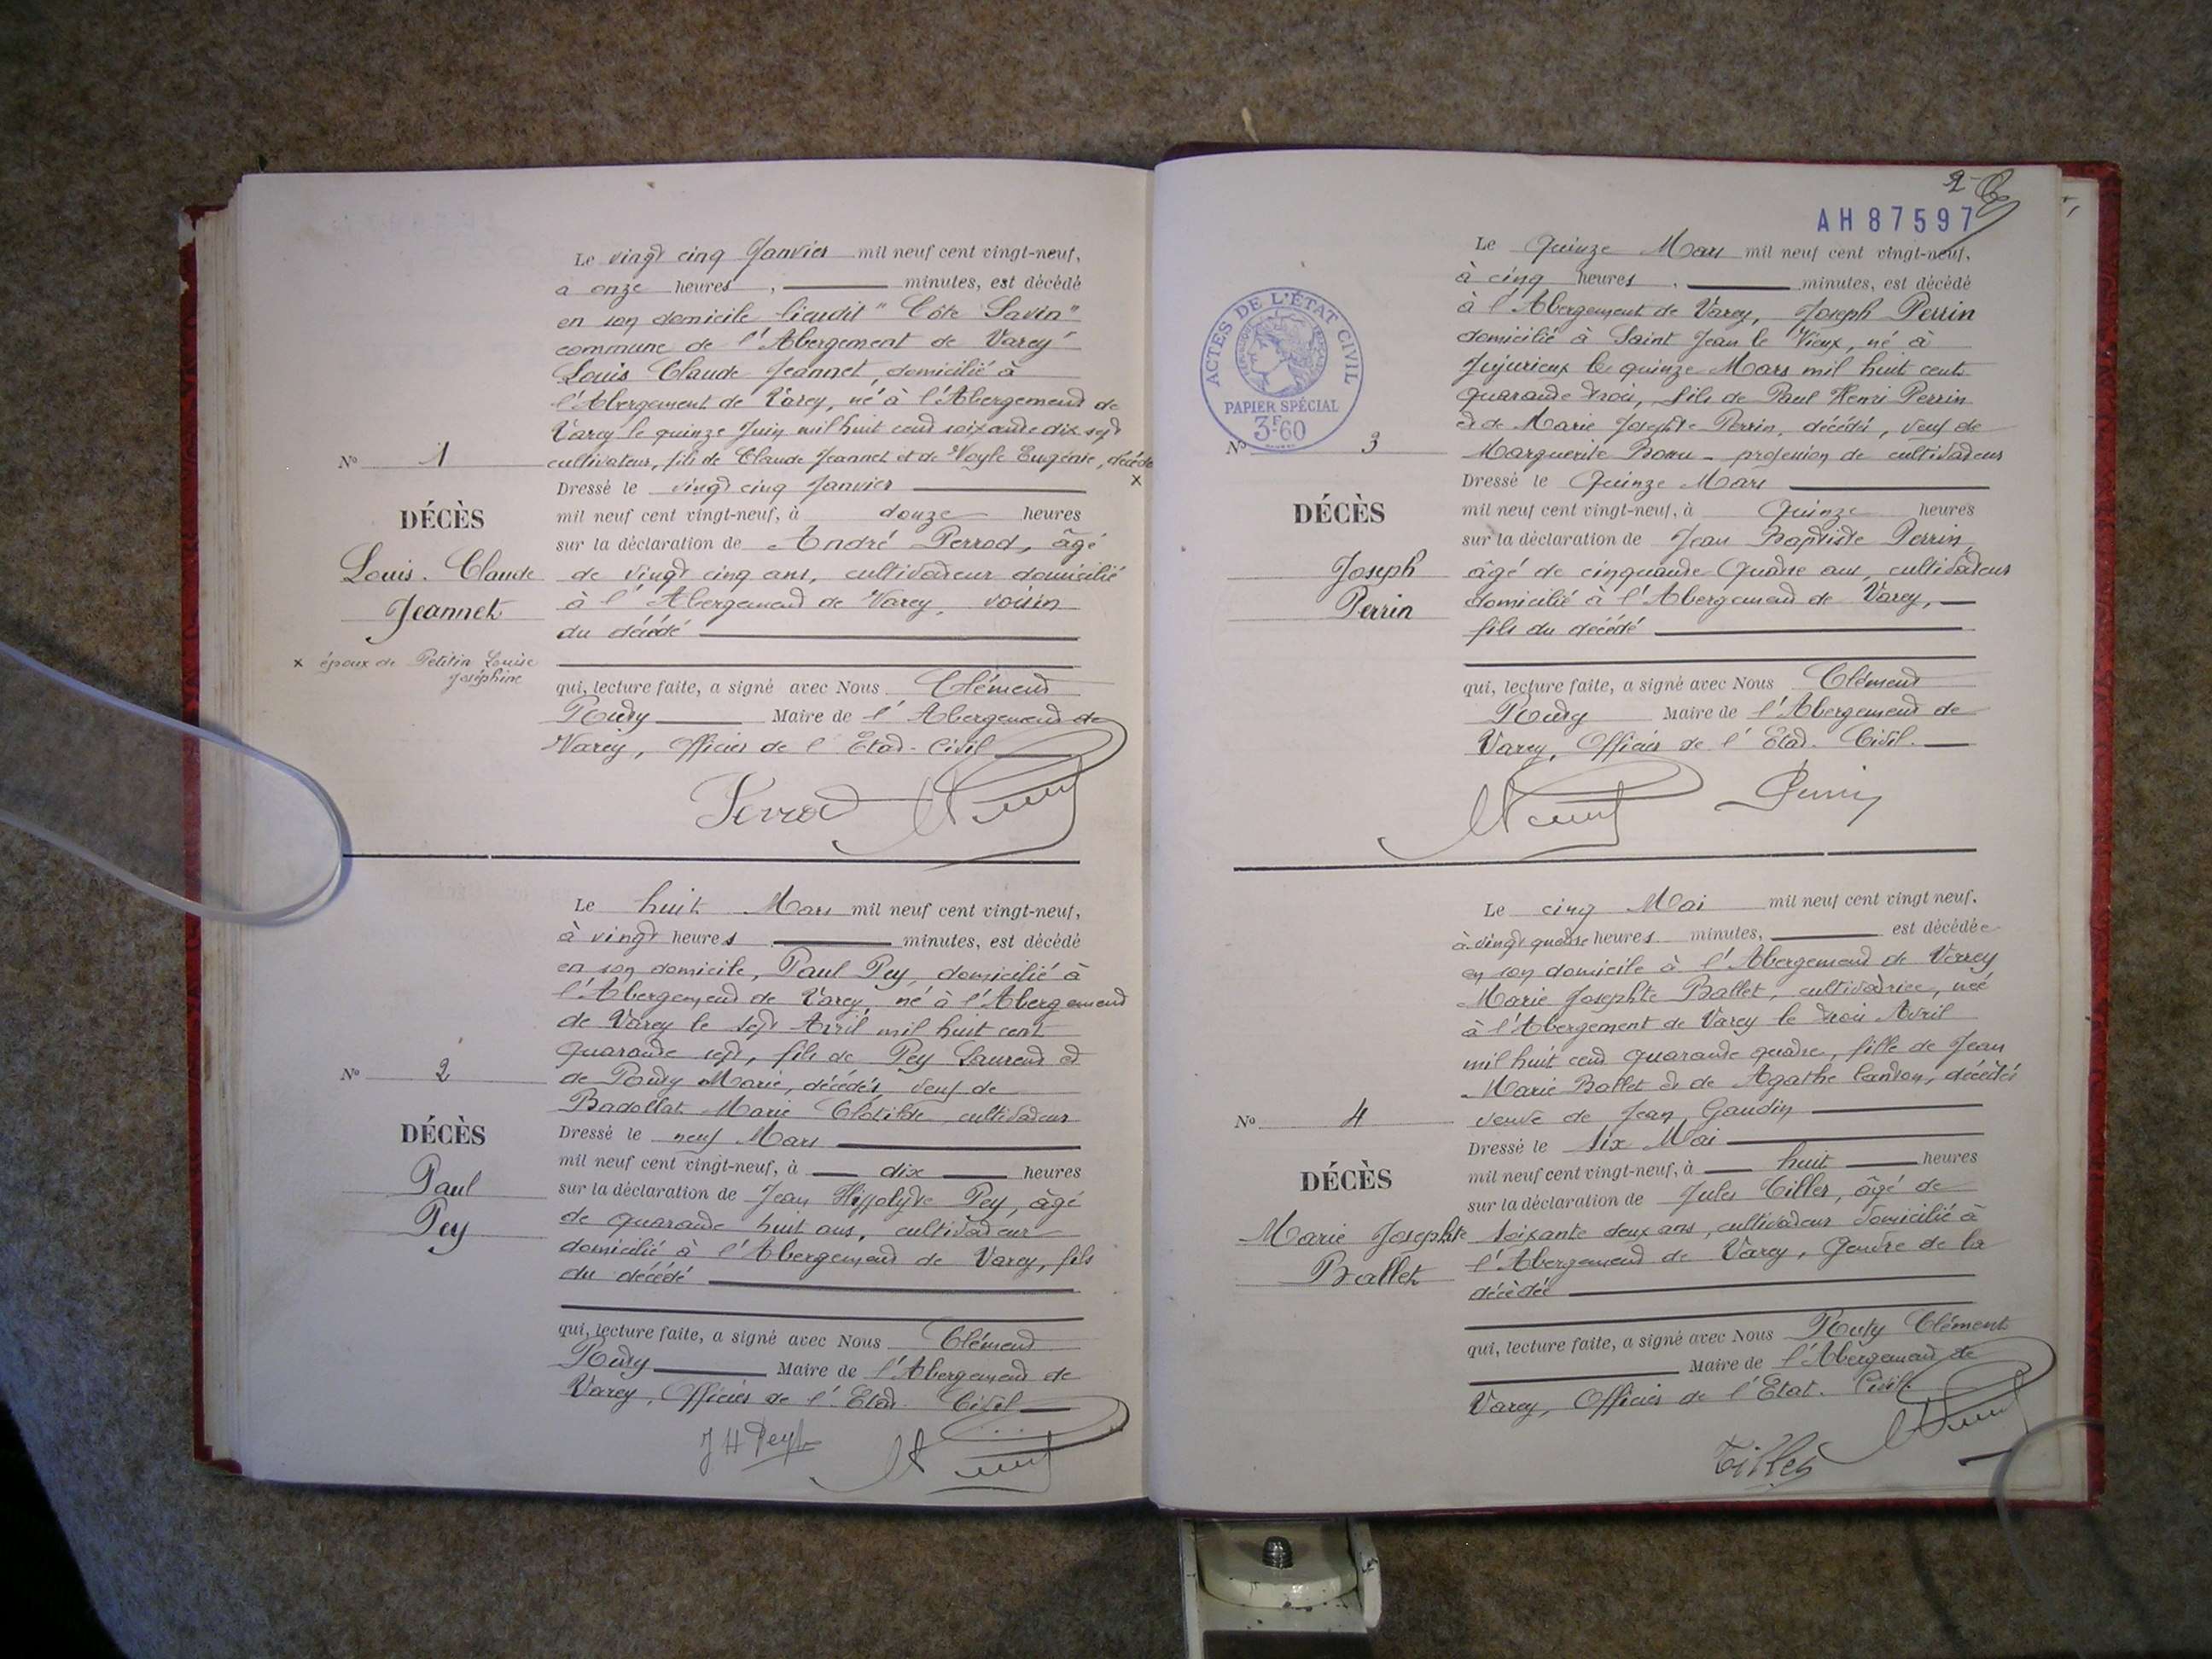 Le vingt cinq Janvier mil neuf cent vingt-neuf,
a onze heures , minutes, est décédé
en son domicile lieudit "Côte Savin"
commune de l'Abergement de Varey
Louis Claude Jeannet, domicilié à
l'Abergement de Varey, né à l'Abergement de
Varey le quinze Juin mil huit cent soixante dix sept
cultivateur, fils de Claude Jeannet et de Noyle Eugénie, décédés
x
No 1
Dressé le vingt cinq Janvier
mil neuf cent vingt-neuf, à douze heures
DÉCÈS
sur la déclaration de André Perrod, âgé
Louis. Claude
Jeannet
de vingt cinq ans, cultivateur domicilié
à l'Abergement de Varey, voisin
du décédé
x époux de Petitin Louise
Joséphine
qui, lecture faite, a signé avec Nous Clément
Roudy Maire de l'Abergement de
Varey, Officier de l'Etat-Civil
Perrod
Le huit Mars mil neuf cent vingt-neuf,
à vingt heures minutes, est décédé
en son domicile, Paul Pey, domicilié à
l'Abergement de Varey, né à l'Abergement
de Varey le sept Avril mil huit cent
quarante sept, fils de Pey Laurent et
de Roudy Marie, décédés, veuf de
Badollat Marie Clotilde, cultivateur
No 2
DÉCÈS
Paul
Pey
Dressé le neuf Mars
mil neuf cent vingt-neuf, à dix heures
sur la déclaration de Jean Hippolyte Pey, âgé
de quarante huit ans, cultivateur
domicilié à l'Abergement de Varey, fils
du décédé
qui, lecture faite, a signé avec Nous Clément
Roudy Maire de l'Abergement de
Varey, Officier de l'Etat. Civil
J H Pey
2
AH 87597
Le Quinze Mars mil neuf cent vingt-neuf,
à cinq heures , minutes, est décédé
à l'Abergement de Varey, Joseph Perrin
domicilié à Saint Jean le Vieux, né à
Jujurieux le quinze Mars mil huit cent
quarante trois, fils de Paul Henri Perrin
et de Marie Josephte Perrin, décédés, veuf de
Marguerite - profession de cultivateur
ACTES DE L'ÉTAT CIVIL
PAPIER SPÉCIAL
3F60
No 3
DÉCÈS
Joseph
Perrin
Dressé le Quinze Mars
mil neuf cent vingt-neuf, à Quinze heures
sur la déclaration de Jean Baptiste Perrin,
âgé de cinquante Quatre ans, cultivateur
domicilié à l'Abergement de Varey,
fils du décédé
qui, lecture faite, a signé avec Nous Clément
Roudy Maire de l'Abergement de
Varey, Officier de l'Etat. Civil.
Perrin
Le cinq Mai mil neuf cent vingt neuf.
à vingt quatre heures minutes, est décédée
en son domicile à l'Abergement de Varey
Marie Josephte Ballet, cultivatrice, née
à l'Abergement de Varey le trois Avril
mil huit cent quarante quatre, fille de Jean
Marie Ballet et de Agathe , décédés
veuve de Jean Gaudin
No 4
DÉCÈS
Marie Josephte
Ballet
Dressé le six Mai
mil neuf cent vingt-neuf, à huit heures
sur la déclaration de Jules Tiller, âgé de
soixante deux ans, cultivateur domicilié à
l'Abergement de Varey, Gendre de la
décédée
qui, lecture faite, a signé avec Nous Roudy Clément
Maire de l'Abergement de
Varey, Officier de l'Etat. Civil.
Tiller